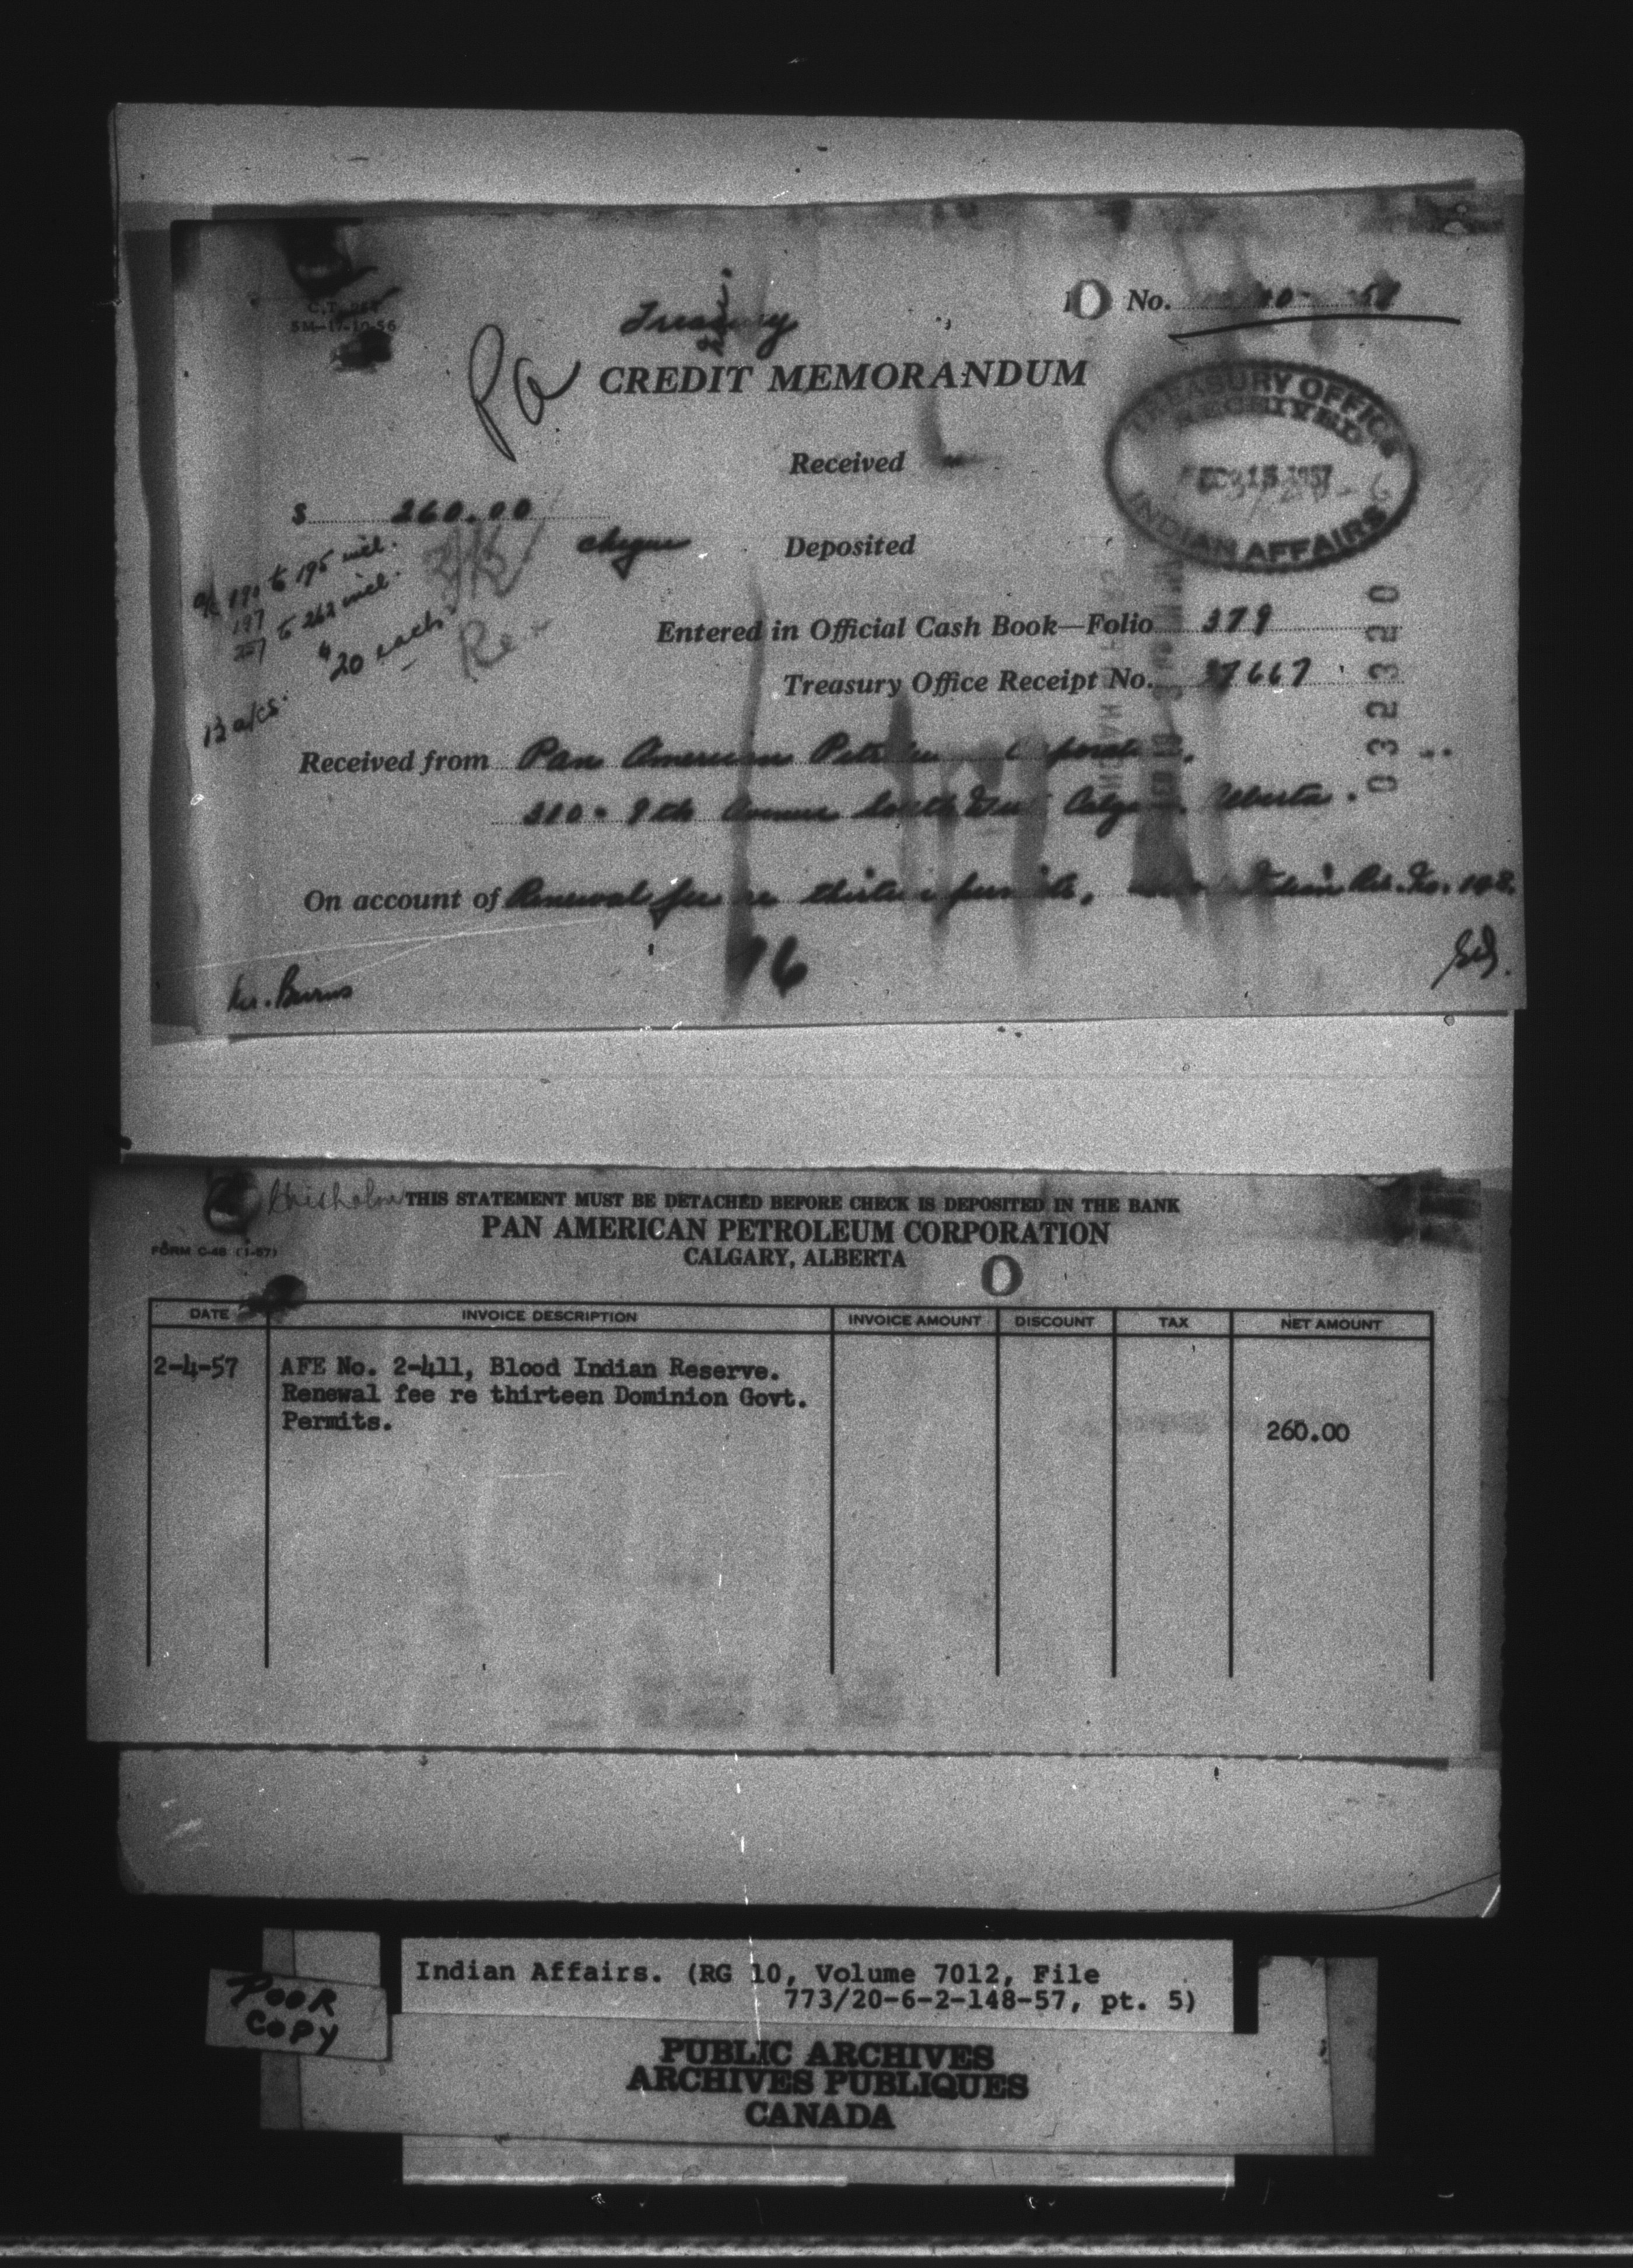 5M-17-10-56
Treasury
No.
Pa
CREDIT MEMORANDUM
TREASURY OFFICE
RECEIVED
1957
INDIAN AFFAIRS
Received
$ 260.00
cheque
Deposited
190 to 195 incl.
197
257 to 262 incl.
20 each
13 a/cs.
Entered in Official Cash Book—Folio 379
Treasury Office Receipt No. 37667
032320
Received from Pan American Petroleum Corporation.
310 - 9th Avenue South West Calgary. Alberta.
On account of Renewal fee re thirteen permits, Indian Res. No. 148.
76
Mr. Burns
Chisholm
THIS STATEMENT MUST BE DETACHED BEFORE CHECK IS DEPOSITED IN THE BANK
PAN AMERICAN PETROLEUM CORPORATION
CALGARY, ALBERTA
FORM C-48 (1-57)
O
DATE INVOICE DESCRIPTION INVOICE AMOUNT DISCOUNT TAX NET AMOUNT
2-4-57 AFE No. 2-411, Blood Indian Reserve.
Renewal fee re thirteen Dominion Govt.
Permits. 260.00
POOR
COPY
Indian Affairs. (RG 10, Volume 7012, File
773/20-6-2-148-57, pt. 5)
PUBLIC ARCHIVES
ARCHIVES PUBLIQUES
CANADA